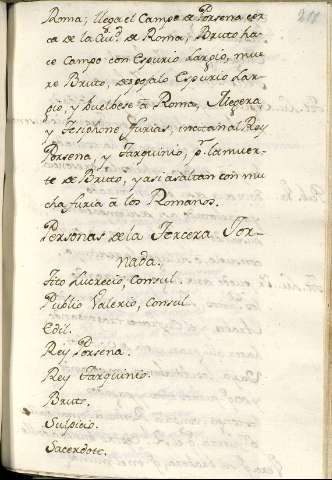 Roma; llega el Campo de Porsena cer-
ca de la Ciud. de Roma; Bruto ha-
ce Campo con Espurio Largio, mue-
re Bruto, despojalo Espurio Lar-
gio, y buelbese a Roma, Alegera
y Tesiphone Furias, incitan al Rey
Porsena, y Tarquinio, pr. la muer-
te de Bruto, y asi asaltan con mu
cha furia à los Romanos.
Personas de la Tercera Jor-
nada.
Tito Lucrecio, Consul.
Publio Valerio, Consul
Edil.
Rey Porsena.
Rey Tarquinio.
Bruto.
Sulpicio.
Sacerdote.